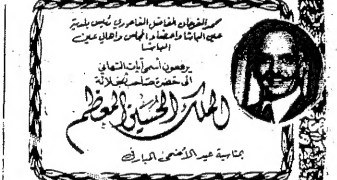 محمد الفرحان الفاضل الفاعوري رئيس بلدية
عين الباشا واعضاء المجلس واهالي عين
الباشا
يرفعون أسمى آيات التهاني
الى حضرة صاحب الجلالة
الملك الحسين المعظم
بمناسبة عيد الأضحى المبارك